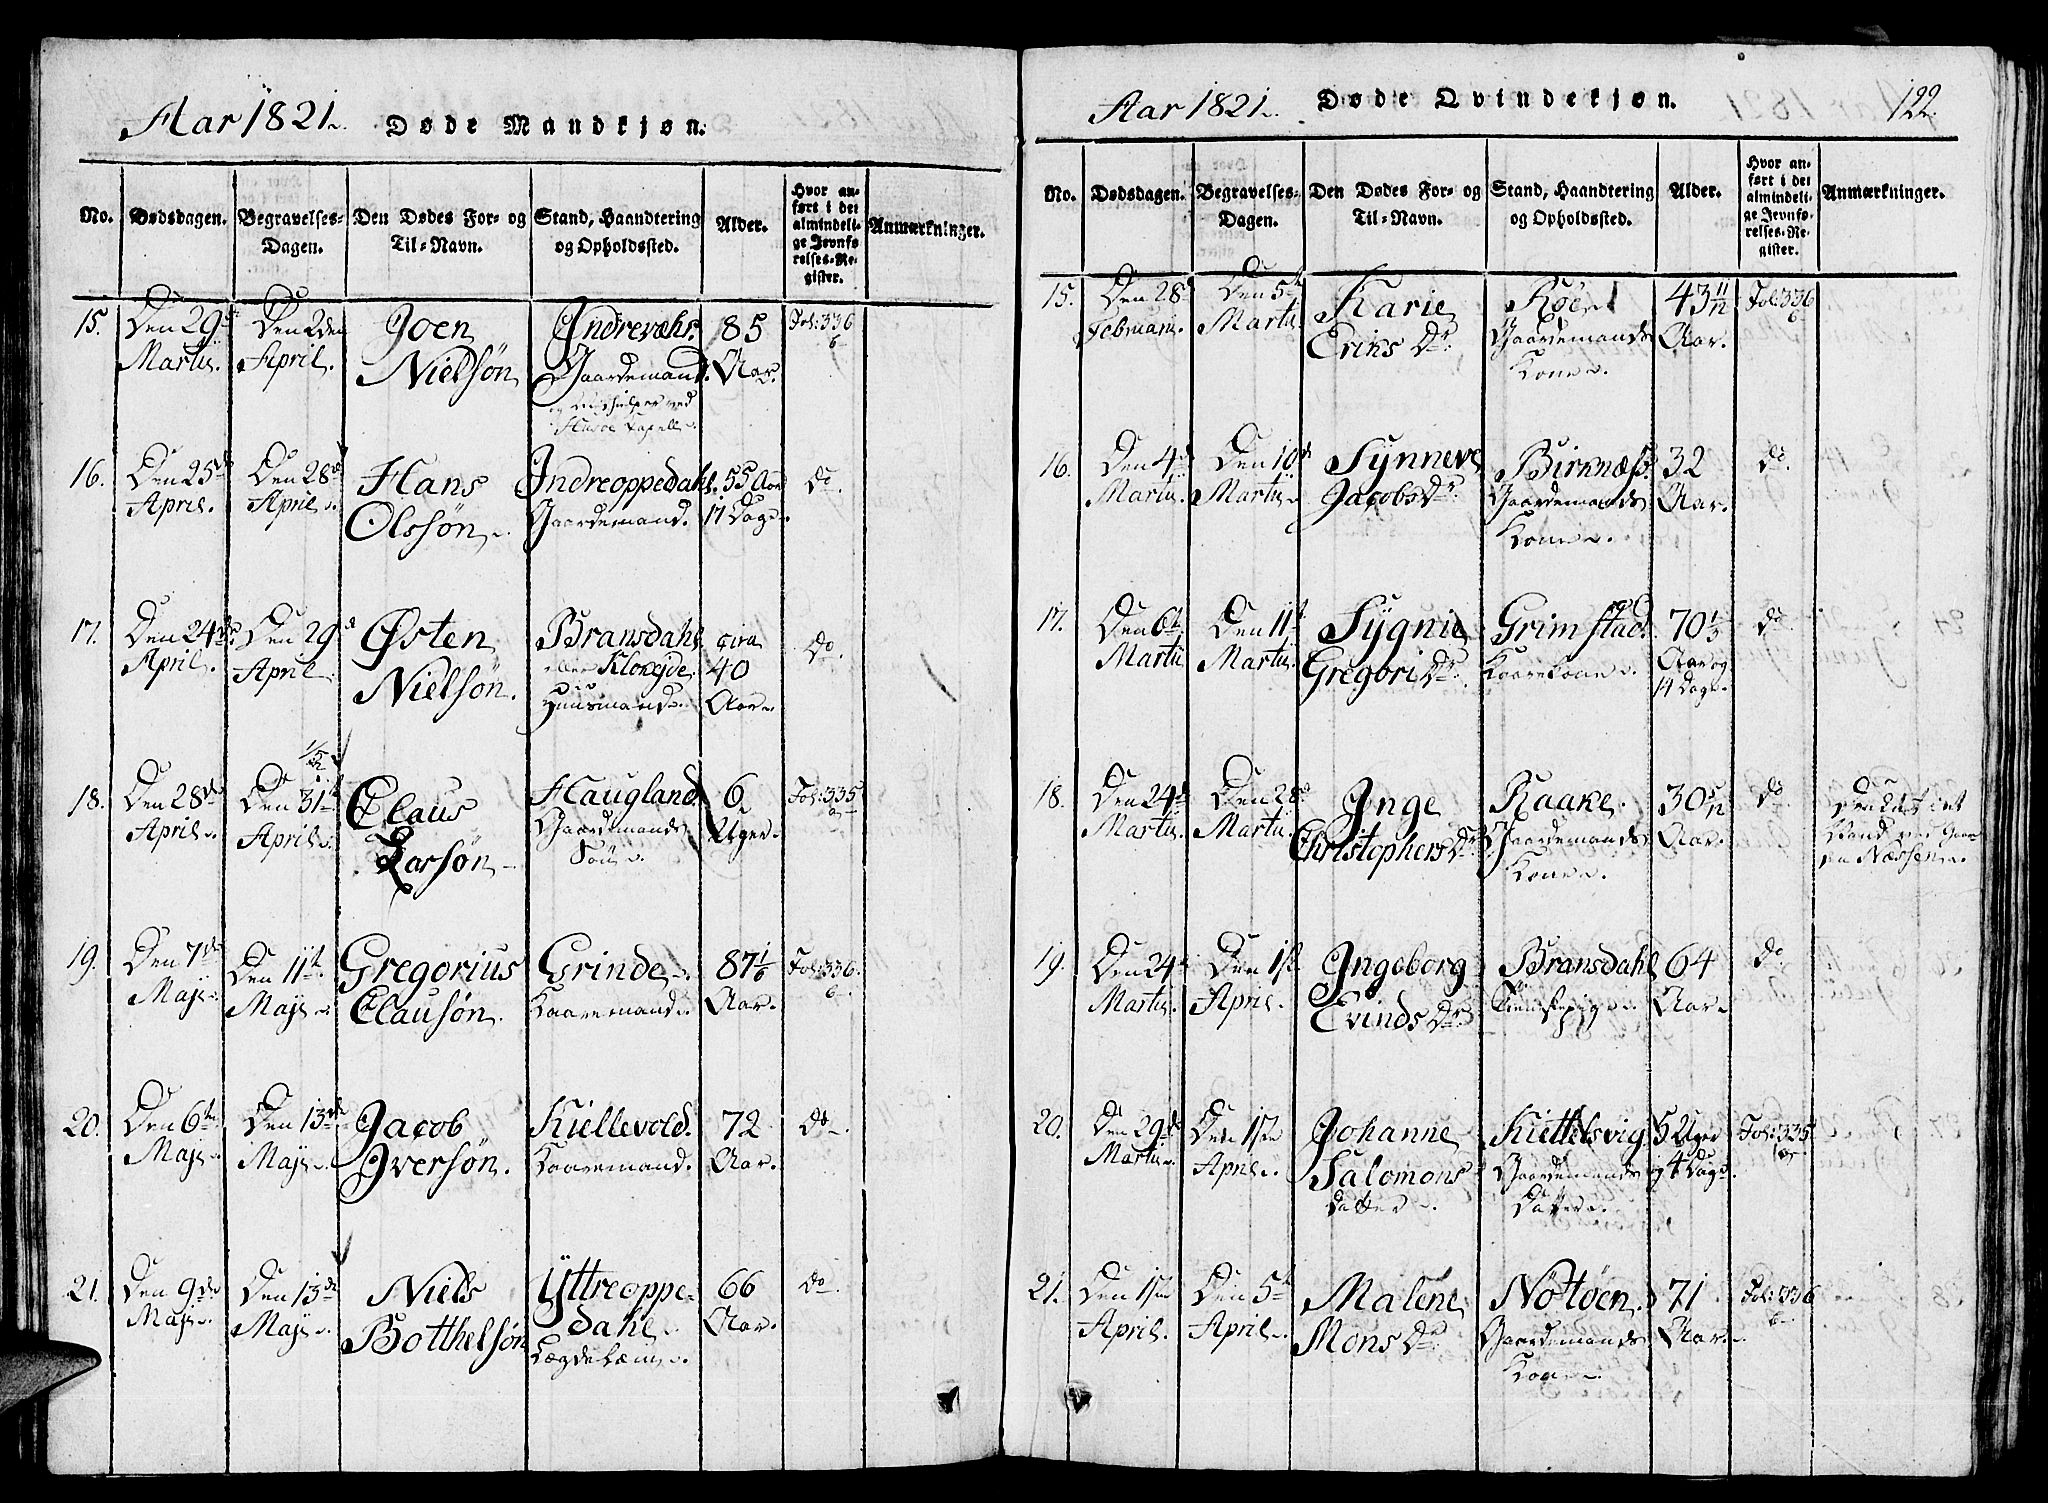 Aar 1821. Døde Mandkjøn.
No. Dødsdagen. Begravelses-Dagen. Den Dødes For- og Til-Navn. Stand, Haandtering og Opholdssted. Alder. Hvor anført i det almindelige Jevnførelses-Register. Anmærkninger.
15. Den 29de Martii. Den 2den April. Joen Nielsøn Indrevæhr. Gaardemand. og Medhielper ved Husøe Capell. 85 Aar. Fol: 336 b
16. Den 25de April. Den 28de April. Hans Olssøn. Indreoppedahl. Gaardemand. 55 Aar 17 Dage. do.
17. Den 24de April. Den 29de April. Østen Nielsøn. Bransdahl eller Huusmand. cira 40 Aar. do.
18. Den 28de April. Den 31te April. 1/5 Claus Larsøn Haugland. Gaardemands Søn. 6 Uger. Fol: 335
19. Den 7de Maji. Den 11te Maji. Gregorius Clausøn. Grinde. Kaaremand. 87 1/6 Aar. Fol: 336. b.
20. Den 6te Maji. Den 13de Maji. Jacob Iversøn. Kiellevold. Kaaremand. 72 Aar. do.
21. Den 9de Maji. Den 13de Maji. Niels Botthelsøn Yttreoppedahl. Lægdelem. 66 Aar. do.
Aar 1821. Døde Qvindekjøn. 122.
No. Dødsdagen. Begravelses-Dagen. Den Dødes For- og Til-Navn. Stand, Haandtering og Opholdssted. Alder. Hvor anført i det almindelige Jevnførelses-Register. Anmærkninger.
15. Den 28de Februarii. Den 5te Martii. Karie Eriks Dr. Gaardemands Kone. 43 11/12 Aar. Fol: 336 b
16. Den 4de Martii. Den 10de Martii. Synneve Jacobs Dr. Birknæs. Gaardemands Kone. 32 Aar. do.
17. Den 6te Martii Den 11te Martii. Sygnie Gregori Dr. Grimstad. Kaarekone. 70 1/3 Aar og 14 Dage. do.
18. Den 24de Martii. Den 28de Martii. Inge Christophers Dr. Raake. Gaardemands Kone. 30 5/12 Aar. do.
19. Den 24de Martii. Den 1ste April. Ingeborg Evinds Dr. Bransdahl Tienstepige. 64 Aar. do.
20. Den 29de Martii. Den 1ste April. Johanne Salomons Datter. Kiettelsvig Gaardemands Datter. 5 Uger og 4 Dage. Fol: 335
21. Den 1ste April. Den 5te April. Malene Mons Dr. Nøtøen. Gaardemands Kone. 71 Aar. Fol: 336 b.